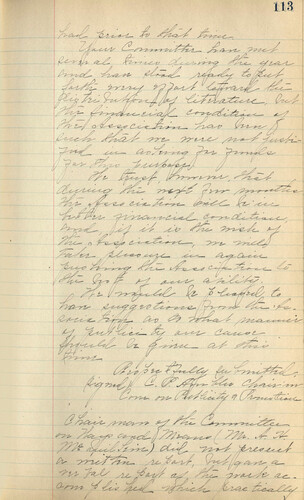 113
had prior to that time.
Your Committee has met
several times during the year
and have stood ready to put
forth every effort toward the
distribution of literature, but
the financial condition of
the Association has been
such that we were not just-
ified in asking for funds
for this purpose.
We trust, however that
during the next few months
the Association will be in
better financial condition,
and if it is the wish of
the Association, we will
take pleasure in again
serving the Association to
the best of our ability.
We would be pleased to
have suggestions from the As-
sociation as to what manner
of publicity our cause
should be given at this
time.
Respectfully submitted,
Signed C. P. Chairman
Com on Publicity & Promotion
Chairman of the Committee
on Ways and Means (Mr. A. A.
) did not present
a written report, but gave a
verbal report of the work ac-
complished which practically